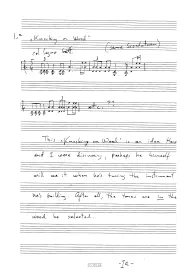 1.a
"Knocking on Wood"
col legno batt.
etc. ??
This "Knocking on Wood" is an idea
and I were discussing, perhaps he himself
will use it when he's tuning the instrument
he's building. After all, the tones are in the
wood he selected.
-1a-